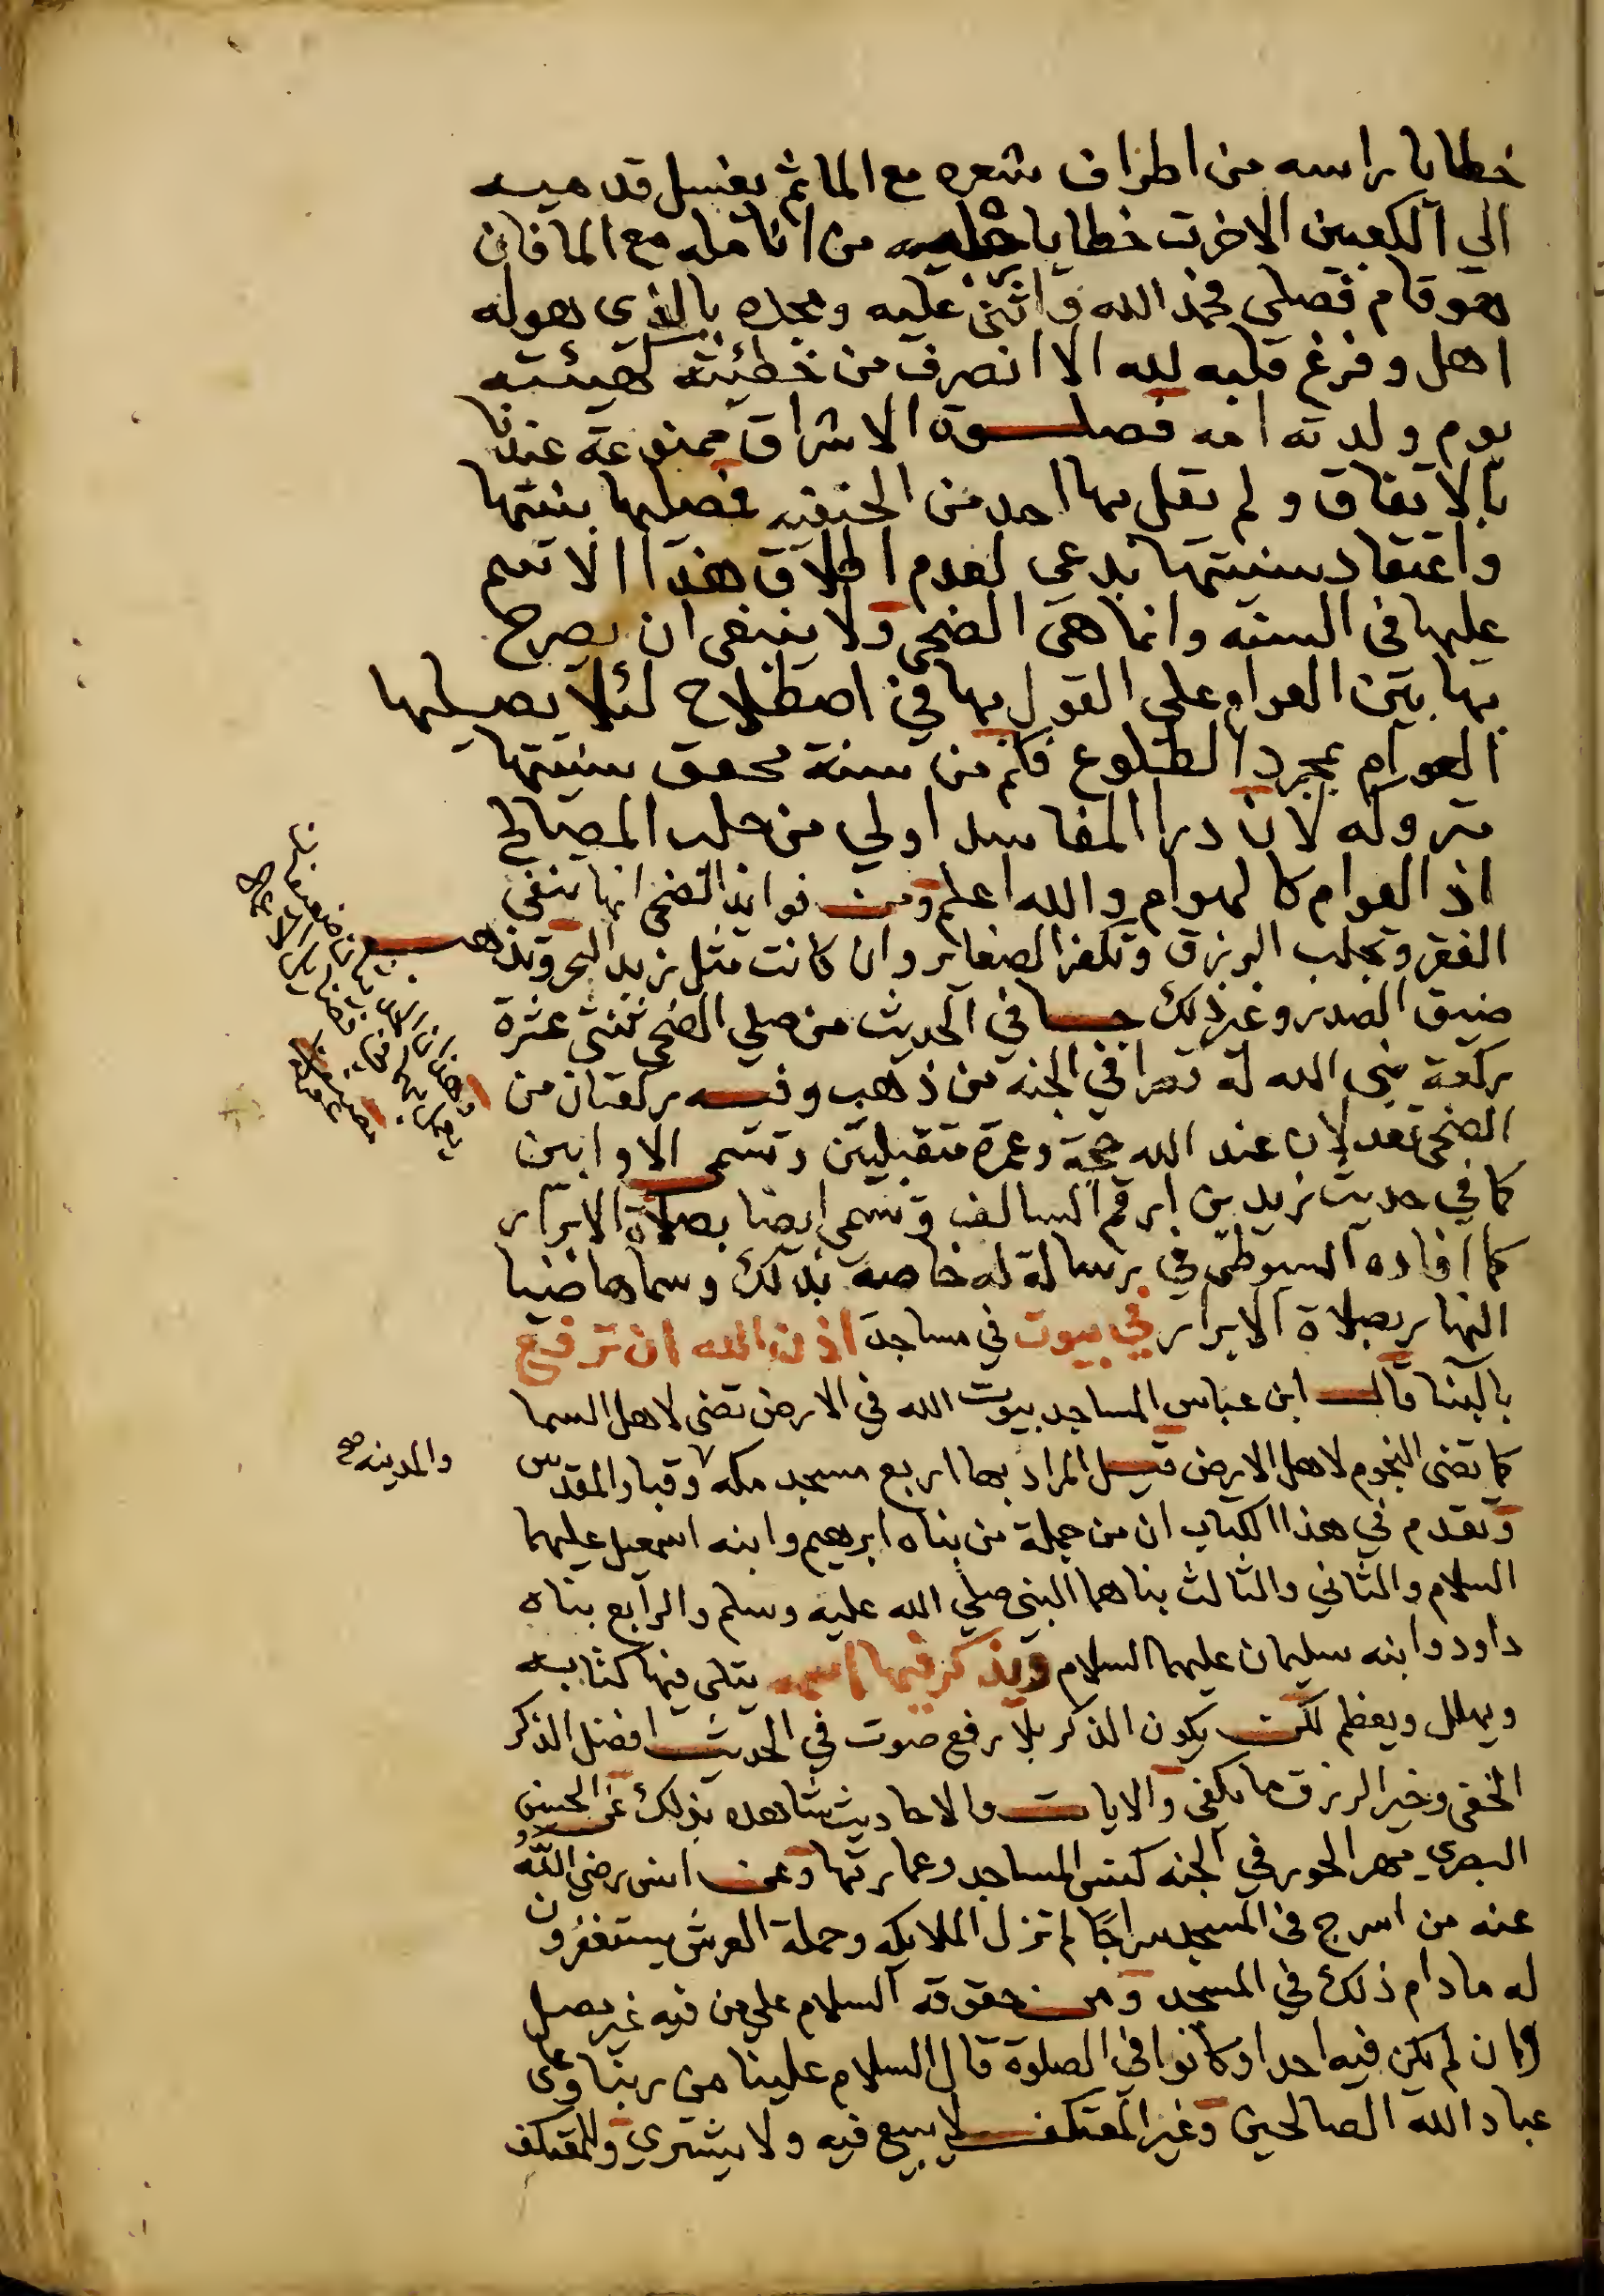 خطايا راسه من اطراف شعره مع الما ثم يغسل قدميه
الي الكعبين الا خرت خطايا رجليه من انامله مع الما فان
هو قام فصلى فحمد الله واثنى عليه ومجده بالذي هو له
اهل وفرغ قلبه لله الا انصرف من خطيئته كهيئته
يوم ولدته امه فصلوة الاشراق ممنوعة عندنا
بالاتفاق ولم يقل بها احد من الحنفيه فصليها بنيتها
واعتقاد سنيتها بدعي لعدم اطلاق هذا الاسم
عليها في السنه وانما هي الضحى ولا ينبغي ان يصرح
بها بين العوام على القول بها في اصطلاح لئلا يصليها
العوام بمجرد الطلوع فكم من سنة محقق سنيتها
متروكه لان درا المفاسد اولي من جلب المصالح
اذ العوام كالهوام والله اعلم ومن فوائد الضحى انها تنفي
الفقر وتجلب الرزق وتكفر الصغائر وان كانت مثل زبد البحر وتذهب
ضيق الصدر وغير ذلك جا في الحديث من صلي الضحى ثنتي عشرة
ركعة بنى الله له قصرا في الجنه من ذهب وفيه ركعتان من
الضحى تعدلان عند الله حجة وعمرة متقبلتين وتسمى الاوابين
كما في حديث زيد بن ارقم السالف وتسمى ايضا بصلاة الابرار
كما افاده السيوطي في رسالة له خاصة بذلك وسماها ضيا
النهار بصلاة الابرار في بيوت في مساجد اذن الله ان ترفع
بالبنا قال ابن عباس المساجد بيوت الله في الارض تضي لاهل السما
كما تضي النجوم لاهل الارض قيل المراد بها اربع مسجد مكه وقبا والمقدس
والمدينه صح
وتقدم في هذا الكتاب ان من جملة من بناه ابرهيم وابنه اسمعيل عليهما
السلام والثاني والثالث بناهما النبي صلي الله عليه وسلم والرابع بناه
داود وابنه سليمان عليهما السلام ويذكر فيها اسمه يتلى فيها كتابه
ويهلل ويعظم لكن يكون الذكر بلا رفع صوت في الحديث افضل الذكر
الخفي وخير الرزق ما يكفي والايات والاحاديث شاهده بذلك عن الحسن
البصري مهر الحور في الجنه كنس المساجد وعمارتها وعن انس رضي الله
عنه من اسرج في المسجد سراجا لم تزل الملايكه وحملة العرش يستغفرون
له مادام ذلك في المسجد ومن حقوقه السلام على من فيه غير مصل
وان لم يكن فيه احد او كانوا في الصلوة قال السلام علينا من ربنا وعلى
عباد الله الصالحين وغير المعتكف لا يبيع فيه ولا يشتري وللمعتكف